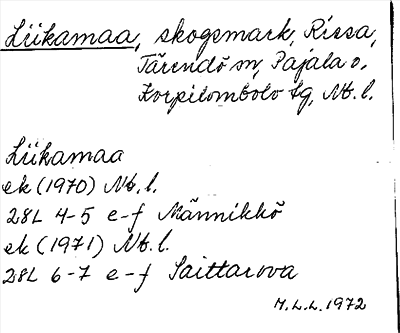 Liikamaa, skogsmark, Rissa,
Tärendö sn, Pajala o.
Korpilombolo tg, Nb. l.
Liikamaa
ek (1970) Nb. l.
28L 4-5 e-f Männikkö
ek (1971) Nb. l.
28L 6-7 e-f Saittarova
M.L.L. 1972